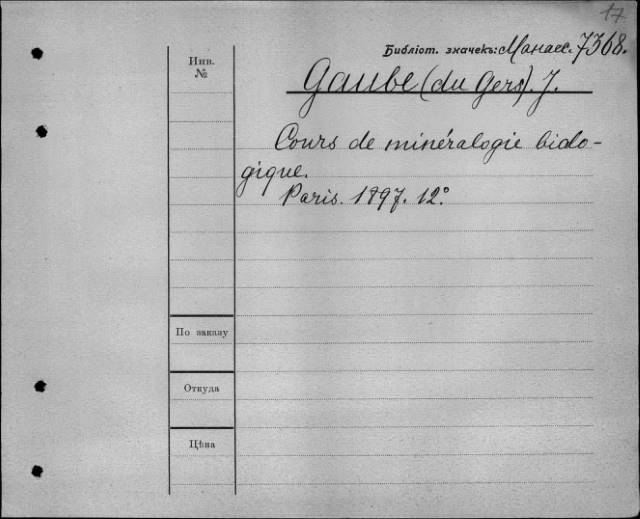 17
Библіот. значекъ: Манасс. 7368.
Инв.
№
Gaube (du Gers). J.
Cours de minéralogie biolo-
gique.
Paris. 1897. 12°.
По заказу
Откуда
Цѣна